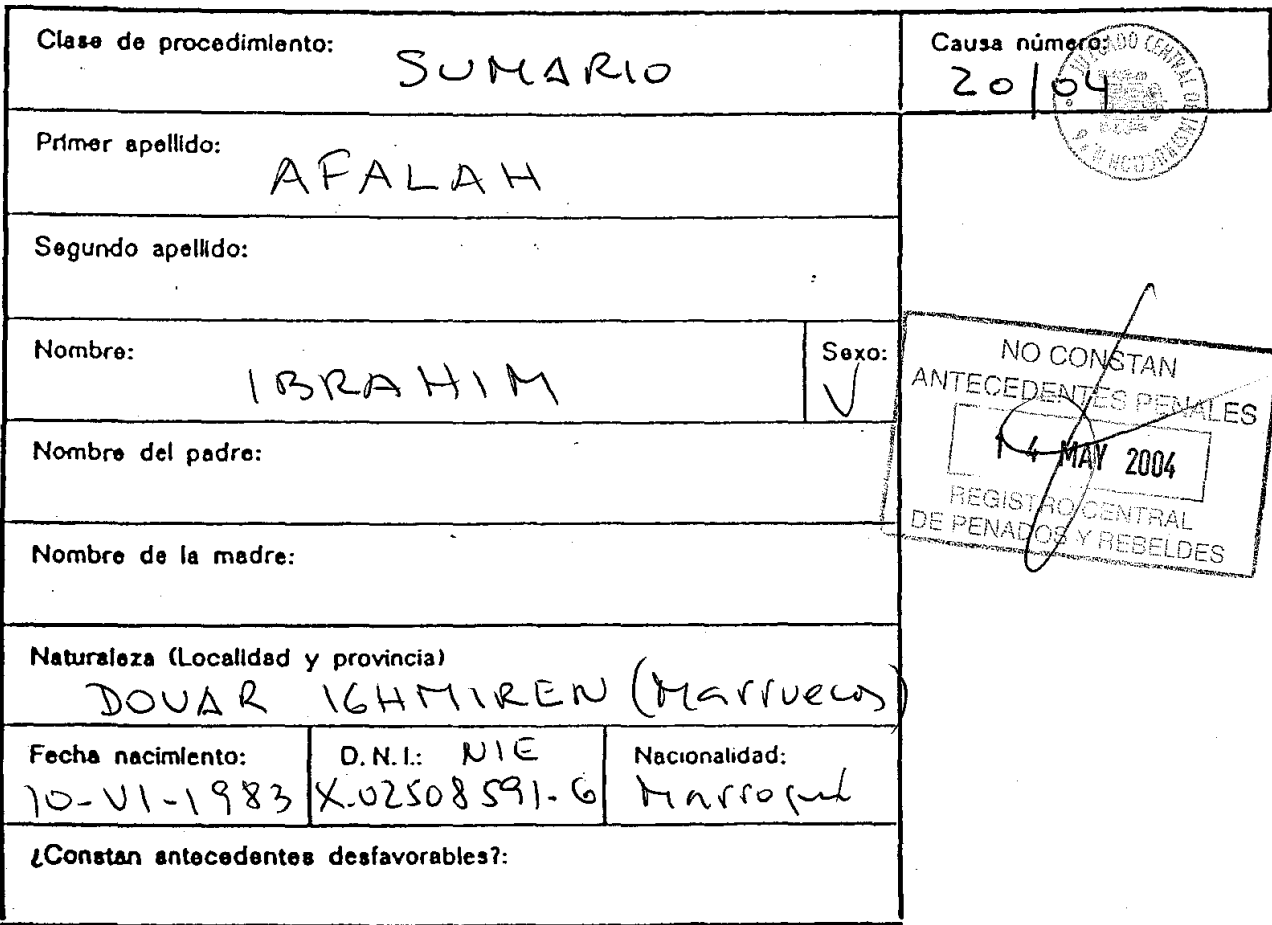 Clase de procedimiento:
SUMARIO
Causa número:
20/04
JUZGADO CENTRAL DE INSTRUCCION N
Primer apellido:
AFALAH
Segundo apellido:
Nombre:
IBRAHIM
Sexo:
V
NO CONSTAN
ANTECEDENTES PENALES
14 MAY 2004
REGISTRO CENTRAL
DE PENADOS Y REBELDES
Nombre del padre:
Nombre de la madre:
Naturaleza (Localidad y provincia)
DOUAR IGHMIREN (Marruecos)
Fecha nacimiento:
10-VI-1983
D.N.I.: NIE
X-02508591-G
Nacionalidad:
Marroquí
¿Constan antecedentes desfavorables?: